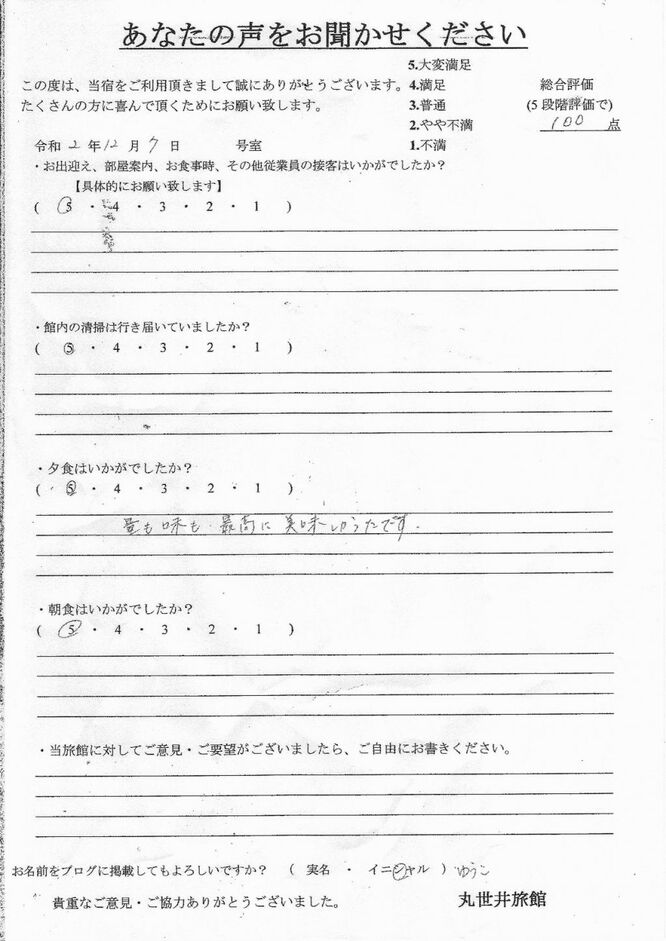 あなたの声をお聞かせください
この度は、当宿をご利用頂きまして誠にありがとうございます。
たくさんの方に喜んで頂くためにお願い致します。
5.大変満足
4.満足
3.普通
2.やや不満
1.不満
総合評価
(5段階評価で)
100 点
令和 2 年 12 月 7 日 号室
・お出迎え、部屋案内、お食事時、その他従業員の接客はいかがでしたか?
【具体的にお願い致します】
( 5 ・ 4 ・ 3 ・ 2 ・ 1 )
・館内の清掃は行き届いていましたか?
( 5 ・ 4 ・ 3 ・ 2 ・ 1 )
・夕食はいかがでしたか?
( 5 ・ 4 ・ 3 ・ 2 ・ 1 )
量も味も最高に美味しかったです.
・朝食はいかがでしたか?
( 5 ・ 4 ・ 3 ・ 2 ・ 1 )
・当旅館に対してご意見・ご要望がございましたら、ご自由にお書きください。
お名前をブログに掲載してもよろしいですか? ( 実名 ・ イニシャル ) ゆうこ
貴重なご意見・ご協力ありがとうございました。 丸世井旅館